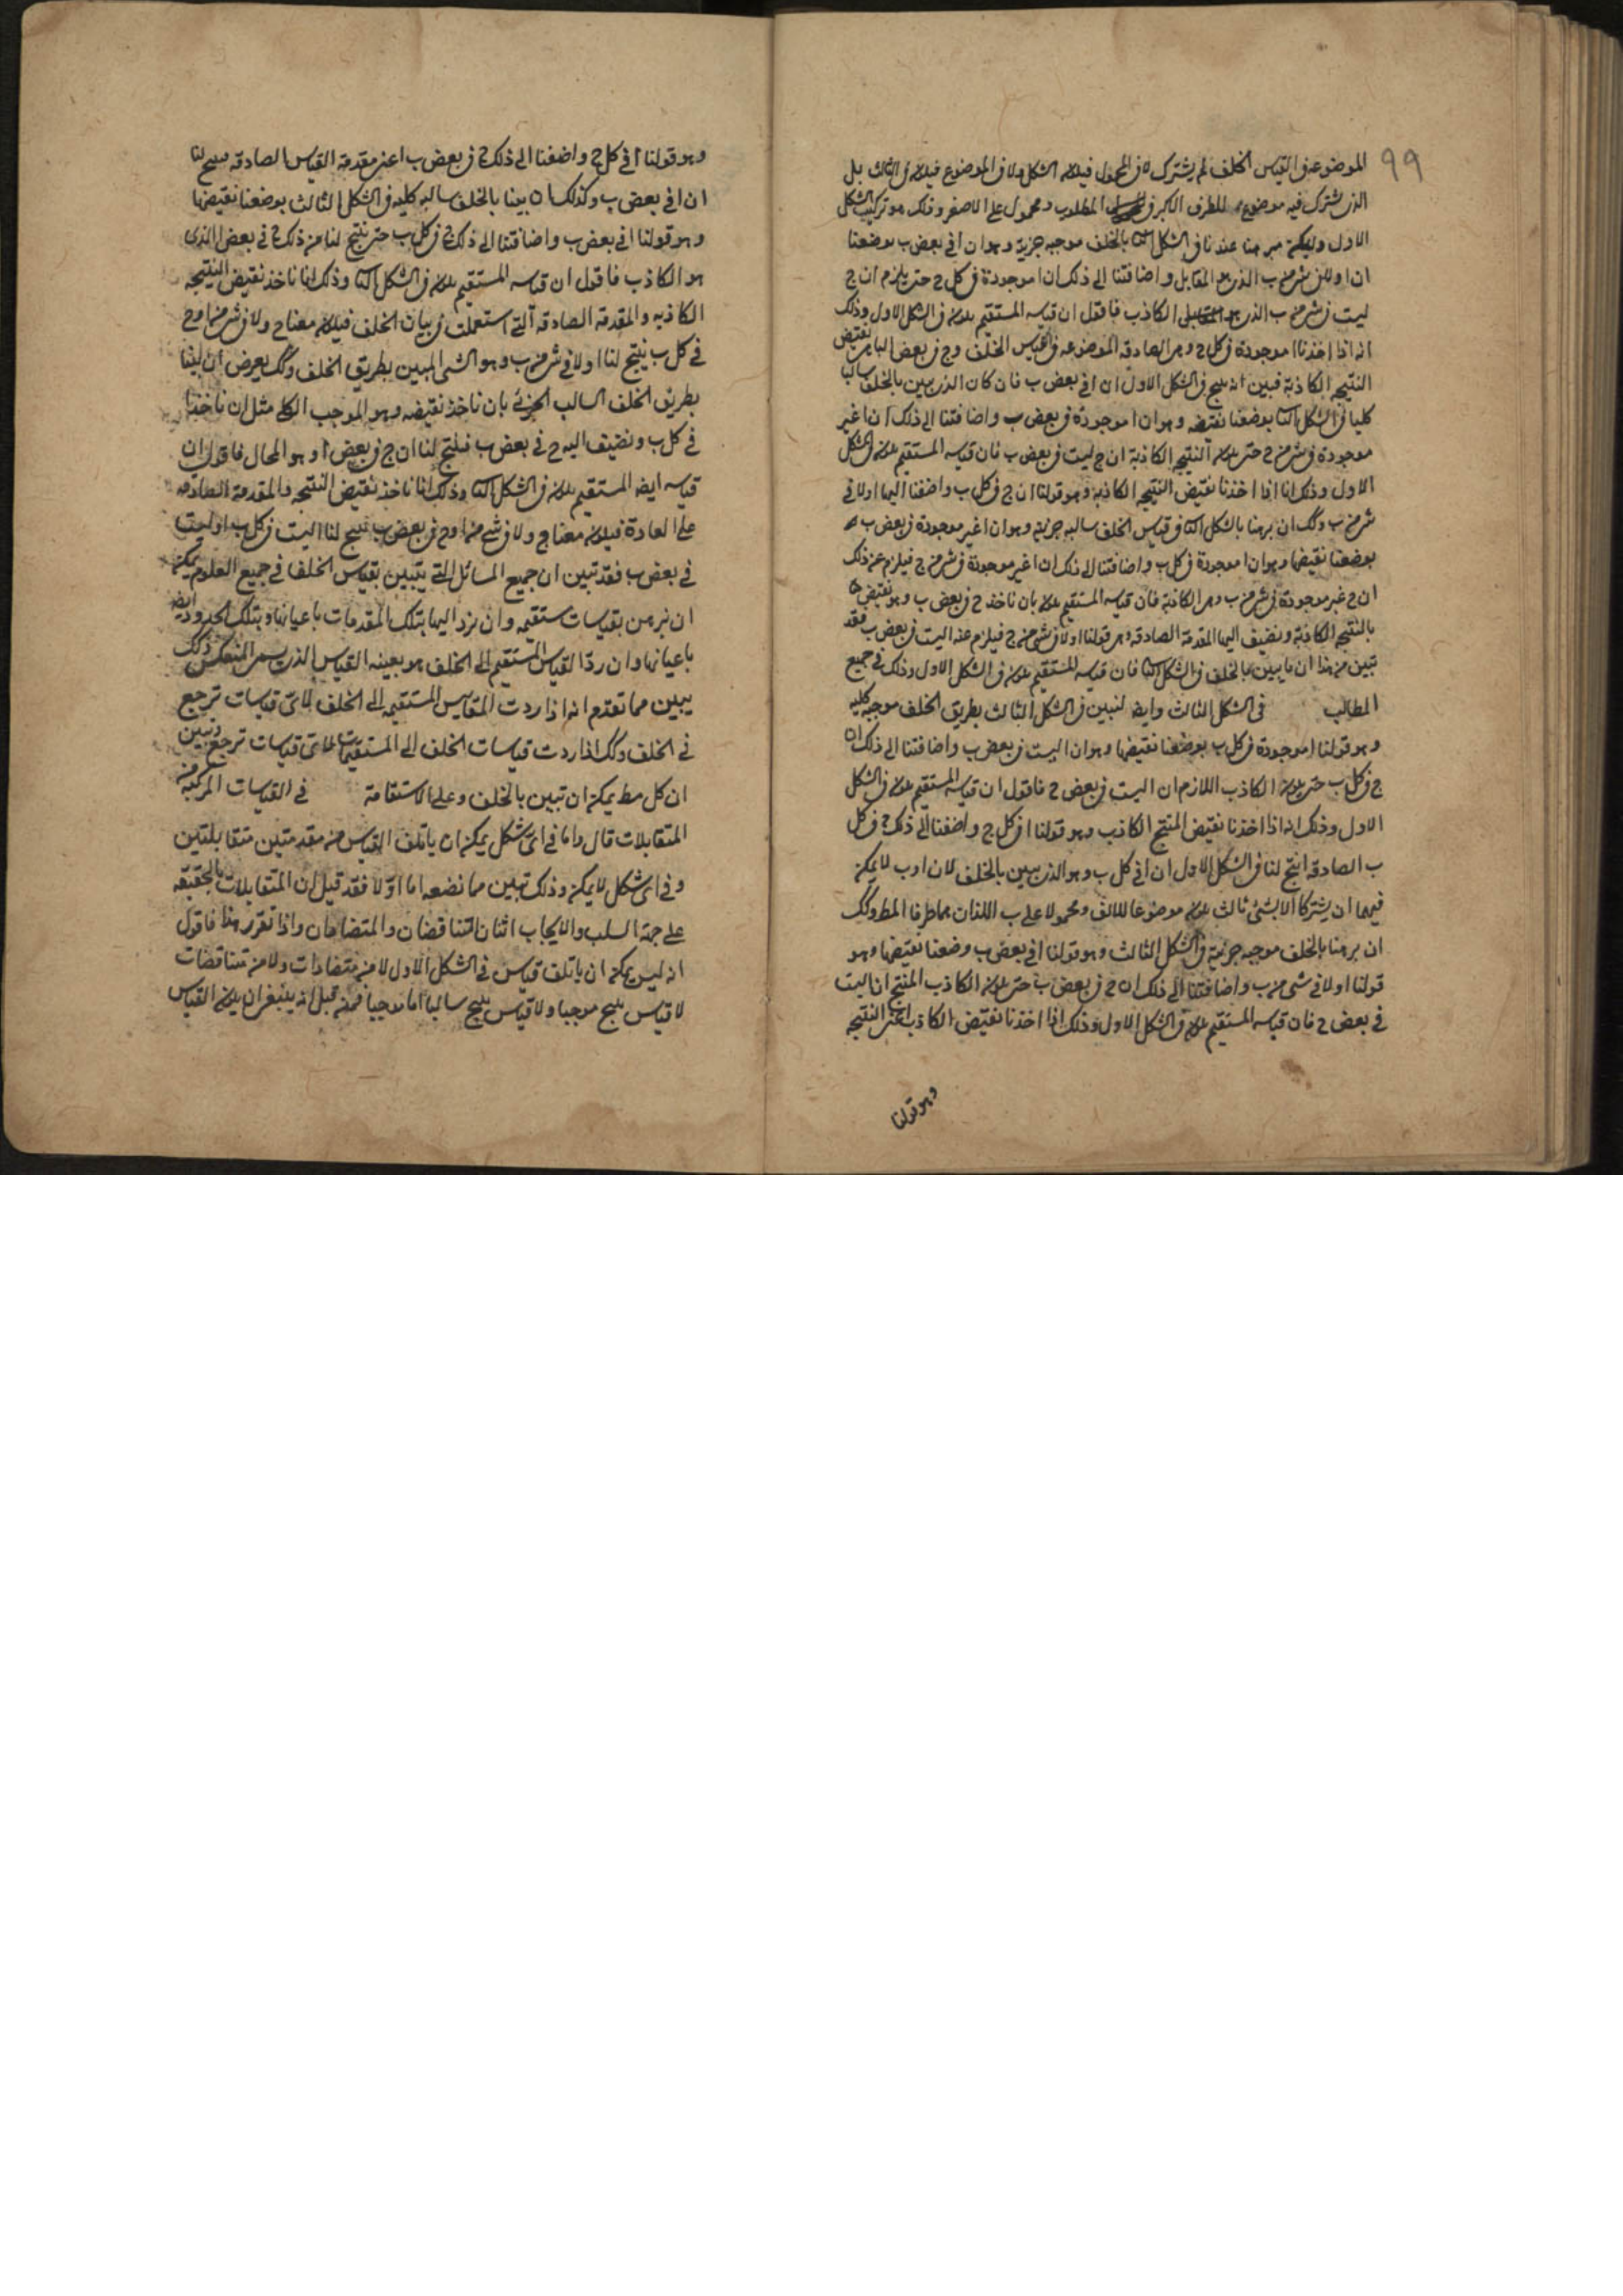 ٩٩
الموضوعة فى القياس الخلف لم يشترك لا فى المحمول فيكون الشكل ولا فى الموضوع فيكون فى الثالث بل
الذى يشترك فيه موضوع للطرف الاكبر فى المطلوب ومحمول على الاصغر وذلك هو تركيب الشكل
الاول وليكن مبرهنا عندنا فى الشكل الثا بالخلف موجبه جزية وهو ان ا فى بعض ب بوضعنا
ان ا ولا فى شى من ب الذى هو المقابل واضافتنا الى ذلك ان ا موجودة فى كل ج حتى يلزم ان ج
ليست فى شى من ب الذى هو الكاذب فاقول ان قياسه المستقيم يكون فى الشكل الاول وذلك
انه اذا اخذنا ا موجودة فى كل ج وهى الصادقه الموضوعه فى القياس الخلف وج فى بعض الباء من نقيض
النتيجه الكاذبة فبين انه ينتج فى الشكل الاول ان ا فى بعض ب فان كان الذى يبين بالخلف سالبا
كليا فى الشكل الثا بوضعنا نقيضه وهو ان ا موجودة فى بعض ب واضافتنا الى ذلك ان ا غير
موجودة فى شى من ج حتى يكون النتيجه الكاذبة ان ج ليست فى بعض ب فان قياسه المستقيم يكون فى الشكل
الاول وذلك انا اذا اخذنا نقيض النتيجه الكاذبه وهو قولنا ان ج فى كل ب واضفنا اليها ا ولا فى
شى من ب وكك ان برهنا بالشكل الثا فى قياس الخلف سالبه جزئية وهو ان ا غير موجودة فى بعض ب
بوضعنا نقيضها وهو ان ا موجودة فى كل ب واضافتنا الى ذلك ان ا غير موجودة فى شى من ج فيلزم عن ذلك
ان ج غير موجودة فى شى من ب وهى الكاذبة فان قياسه المستقيم يكون بان ناخذ ج فى بعض ب وهو نقيض
بالنتيجه الكاذبة ونضيف اليها المقدمة الصادقه وهى قولنا ا ولا فى شى من ج فيلزم عنه ا ليست فى بعض ب فقد
تبين من هذا ان ما يبين بالخلف فى الشكل الثا فان قياسه المستقيم يكون فى الشكل الاول وذلك فى جميع
المطالب فى الشكل الثالث وايضا لنبين فى الشكل الثالث بطريق الخلف موجبه كليه
وهو قولنا ا موجودة فى كل ب بوضعنا نقيضها وهو ان ا ليست فى بعض ب واضافتنا الى ذلك ان
ج فى كل ب حتى يكون الكاذب اللازم ان ا ليست فى بعض ج فاقول ان قياسه المستقيم يكون فى الشكل
الاول وذلك انه اذا اخذنا نقيض المنتج الكاذب وهو قولنا ا فى كل ج واضفنا الى ذلك ج فى كل
ب الصادقه انتج لنا فى الشكل الاول ان ا فى كل ب وهو الذى يبين بالخلف لان ا و ب لا يمكن
فيهما ان يشتركا الا بشئ ثالث يكون موضوعا للالف ومحمولا على ب اللذان هما طرفا المط وكك
ان برهنا بالخلف موجبه جزئية فى الشكل الثالث وهو قولنا ا فى بعض ب وضعنا نقيضها وهو
قولنا ا ولا فى شى من ب واضافتنا الى ذلك ان ج فى بعض ب حتى يكون الكاذب المنتج ان ا ليست
فى بعض ج فان قياسه المستقيم يكون فى الشكل الاول وذلك اذا اخذنا نقيض الكاذب اعنى النتيجه
وهو قولنا
وهو قولنا ا فى كل ج واضفنا الى ذلك ج فى بعض ب اعنى مقدمة القياس الصادقه ينتج لنا
ان ا فى بعض ب وكذلك ان بينا بالخلف سالبه كليه فى الشكل الثالث بوضعنا نقيضها
وهو قولنا ا فى بعض ب واضافتنا الى ذلك ج فى كل ب حتى ينتج لنا من ذلك ج فى بعض ا الذى
هو الكاذب فاقول ان قياسه المستقيم يكون فى الشكل الثا وذلك انا ناخذ نقيض النتيجه
الكاذبه والمقدمه الصادقه التى استعملت فى بيان الخلف فيكون معنا ج ولا فى شى من ا وج
فى كل ب ينتج لنا ا ولا فى شى من ب وهو الشى المبين بطريق الخلف وكك يعرض ان بينا
بطريق الخلف السالب الجزئى بان ناخذ نقيضه وهو الموجب الكلى مثل ان ناخذ ا
فى كل ب ونضيف اليه ج فى بعض ب فينتج لنا ان ج فى بعض ا وهو المحال فاقول ان
قياسه ايضا المستقيم يكون فى الشكل الثا وذلك انا ناخذ نقيض النتيجه والمقدمة الصادقه
على العادة فيكون معنا ج ولا فى شى من ا وج فى بعض ب ينتج لنا ا ليست فى كل ب او ليست
فى بعض ب فقد تبين ان جميع المسائل التى يتبين بقياس الخلف فى جميع العلوم يمكن
ان نبرهن بقياسات مستقيمه وان نرد اليها بتلك المقدمات باعيانها وبتلك الحدود ايضا
باعيانها وان رد القياس المستقيم الى الخلف هو بعينه القياس الذى يسمى المنعكس وذلك
يبين مما تقدم انه اذا ردت المقاييس المستقيمه الى الخلف لاى قياسات ترجع
فى الخلف وكك اذا ردت قياسات الخلف الى المستقيمات لاى قياسات ترجع وتبين
ان كل مط يمكن ان تبين بالخلف وعلى الاستقامة فى القياسات المركبة من
المتقابلات قال واما فى اى شكل يمكن ان ياتلف القياس من مقدمتين متقابلتين
وفى اى شكل لا يمكن وذلك تبين مما نضعه اما اولا فقد قيل ان المتقابلات بالحقيقه
على جهة السلب والايجاب اثنان المتناقضان والمتضادان واذا تقرر هذا فاقول
انه ليس يمكن ان ياتلف قياس فى الشكل الاول لا من متضادات ولا من متناقضات
لا قياس ينتج موجبا ولا قياس ينتج سالبا اما موجبا فمن قبل انه ينبغى ان يكون القياس